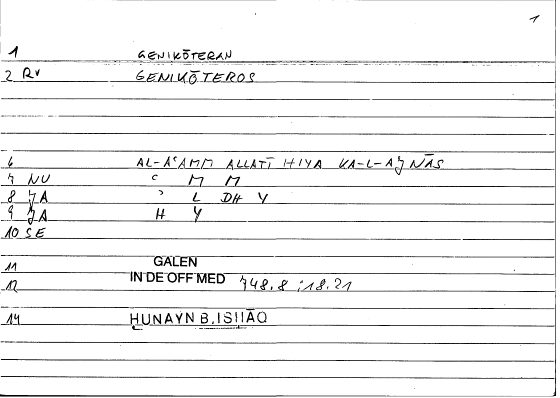 1
1 GENIKŌTERAN
2 RV GENIKŌTEROS
6 AL-AʿAMM ALLATĪ HIYA KA-L-AǦNĀS
7 NU ʿ M M
8 ǦA ʾ L DH Y
9 ǦA H Y
10 SE
11 GALEN
12 IN DE OFF MED 748.8 ;18.21
14 ḤUNAYN B. ISḤĀQ